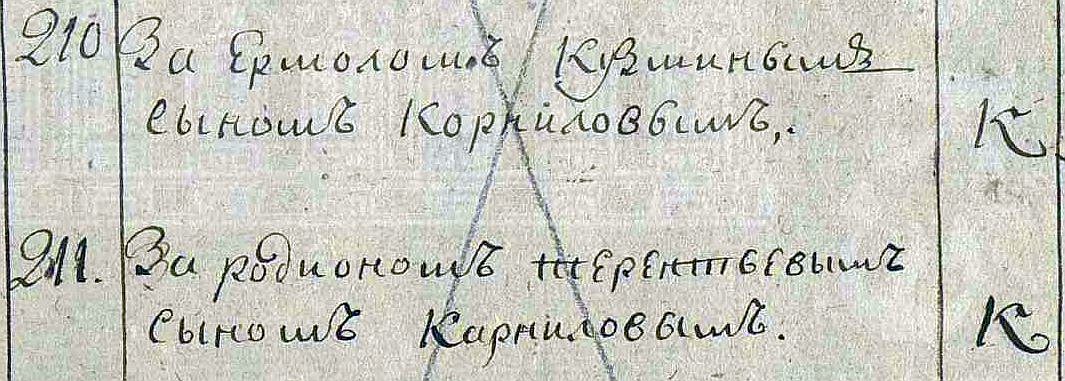 210 За Ермоломъ Кузминымъ
сыномъ Корниловымъ,. К
211. За родиономъ терентьевымъ
сыномъ Карниловымъ. К